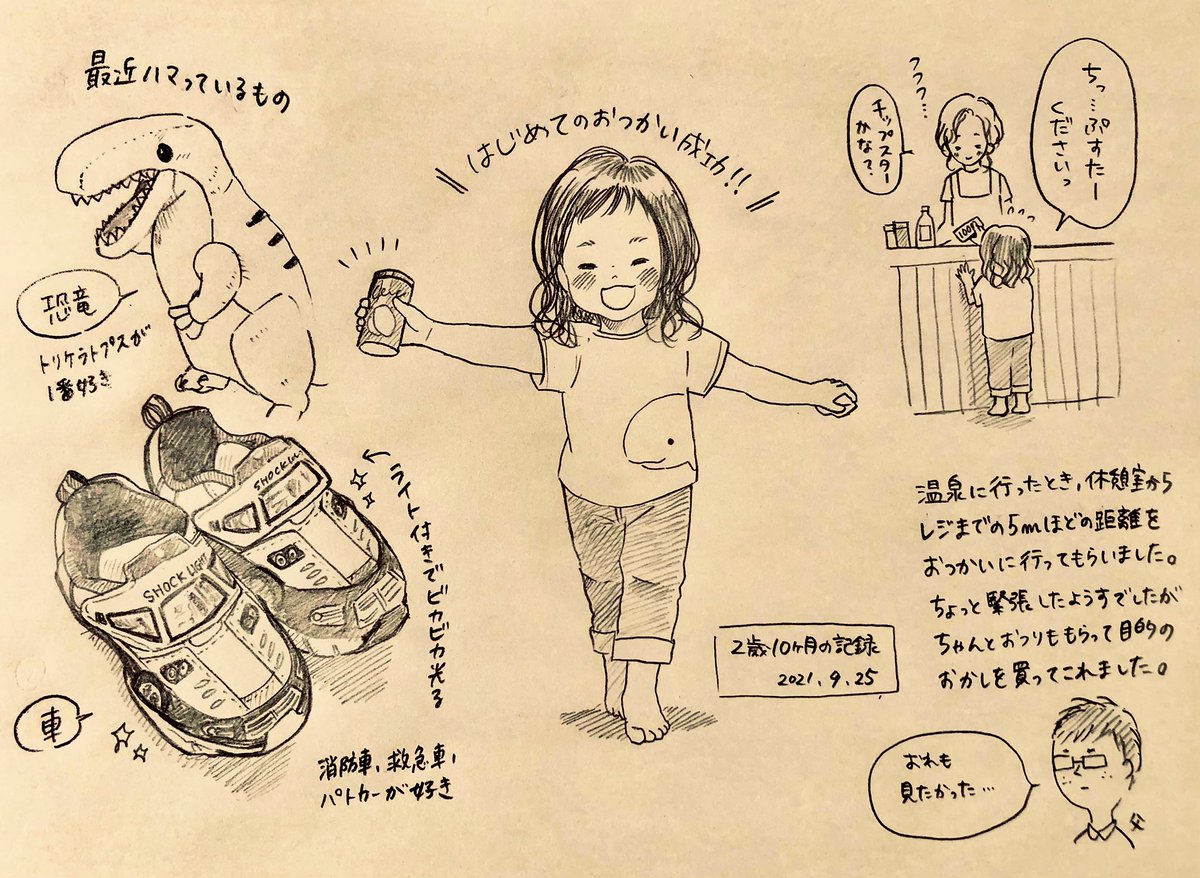 最近ハマっているもの
恐竜
トリケラトプスが
1番好き
SHOCK LIGHT
ライト付きでビカビカ光る
車
消防車、救急車、
パトカーが好き
はじめてのおつかい成功!!
2歳10ヶ月の記録
2021.9.25
ちっ…ぷすたー
くださいっ
フフフ…
チップスター
かな?
100円
温泉に行ったとき、休憩室から
レジまでの5mほどの距離を
おつかいに行ってもらいました。
ちょっと緊張したようすでしたが
ちゃんとおつりももらって目的の
おかしを買ってこれました。
おれも
見たかった…
父